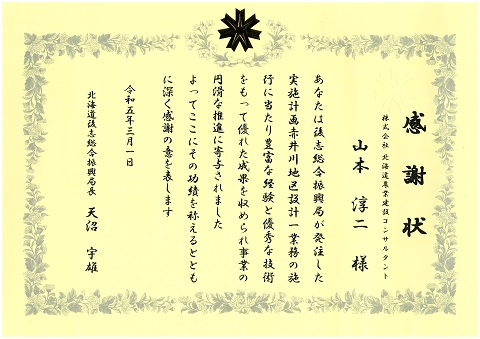 感謝状
株式会社 北海道農業建設コンサルタント
山本 淳二 様
あなたは後志総合振興局が発注した
実施計画赤井川地区設計一業務の施
行に当たり豊富な経験と優秀な技術
をもって優れた成果を収められ事業の
円滑な推進に寄与されました
よってここにその功績を称えるととも
に深く感謝の意を表します
令和五年三月一日
北海道後志総合振興局長 天沼 宇雄